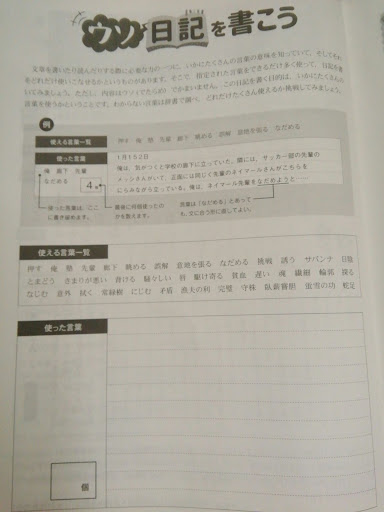 ウソ日記を書こう
文章を書いたり読んだりする際に必要な力の一つに、いかにたくさんの言葉の意味を知っていて、そしてそれ
をどれだけ使いこなせるかというものがあります。そこで、指定された言葉をできるだけ多く使って、日記を書
いてみましょう。ただし、内容はウソ(でたらめ)でかまいません。この日記を書く目的は、いかにたくさんの
言葉を使うかということです。わからない言葉は辞書で調べ、どれだけたくさん使えるか挑戦してみましょう。
例
使える言葉一覧
押す 俺 塾 先輩 廊下 眺める 誤解 意地を張る なだめる
使った言葉
俺 廊下 先輩
なだめる
4個
1月152日
俺は、気がつくと学校の廊下に立っていた。隣には、サッカー部の先輩の
メッシさんがいて、正面には同じく先輩のネイマールさんがこちらを
にらみながら立っている。俺は、ネイマール先輩をなだめようと……
使った言葉は、ここ
に書き留めます。
最後に何個使ったの
かを数えます。
言葉は「なだめる」とあって
も、文に合う形に直してよい。
使える言葉一覧
押す 俺 塾 先輩 廊下 眺める 誤解 意地を張る なだめる 挑戦 誘う サバンナ
とまどう きまりが悪い 怠ける 騒々しい 眉 駆け寄る 貧血 遅い 魂 繊細 輪郭
なじむ 意外 拭く 常緑樹 にじむ 矛盾 漁夫の利 完璧 守株 臥薪嘗胆 蛍雪の功 蛇足
使った言葉
個